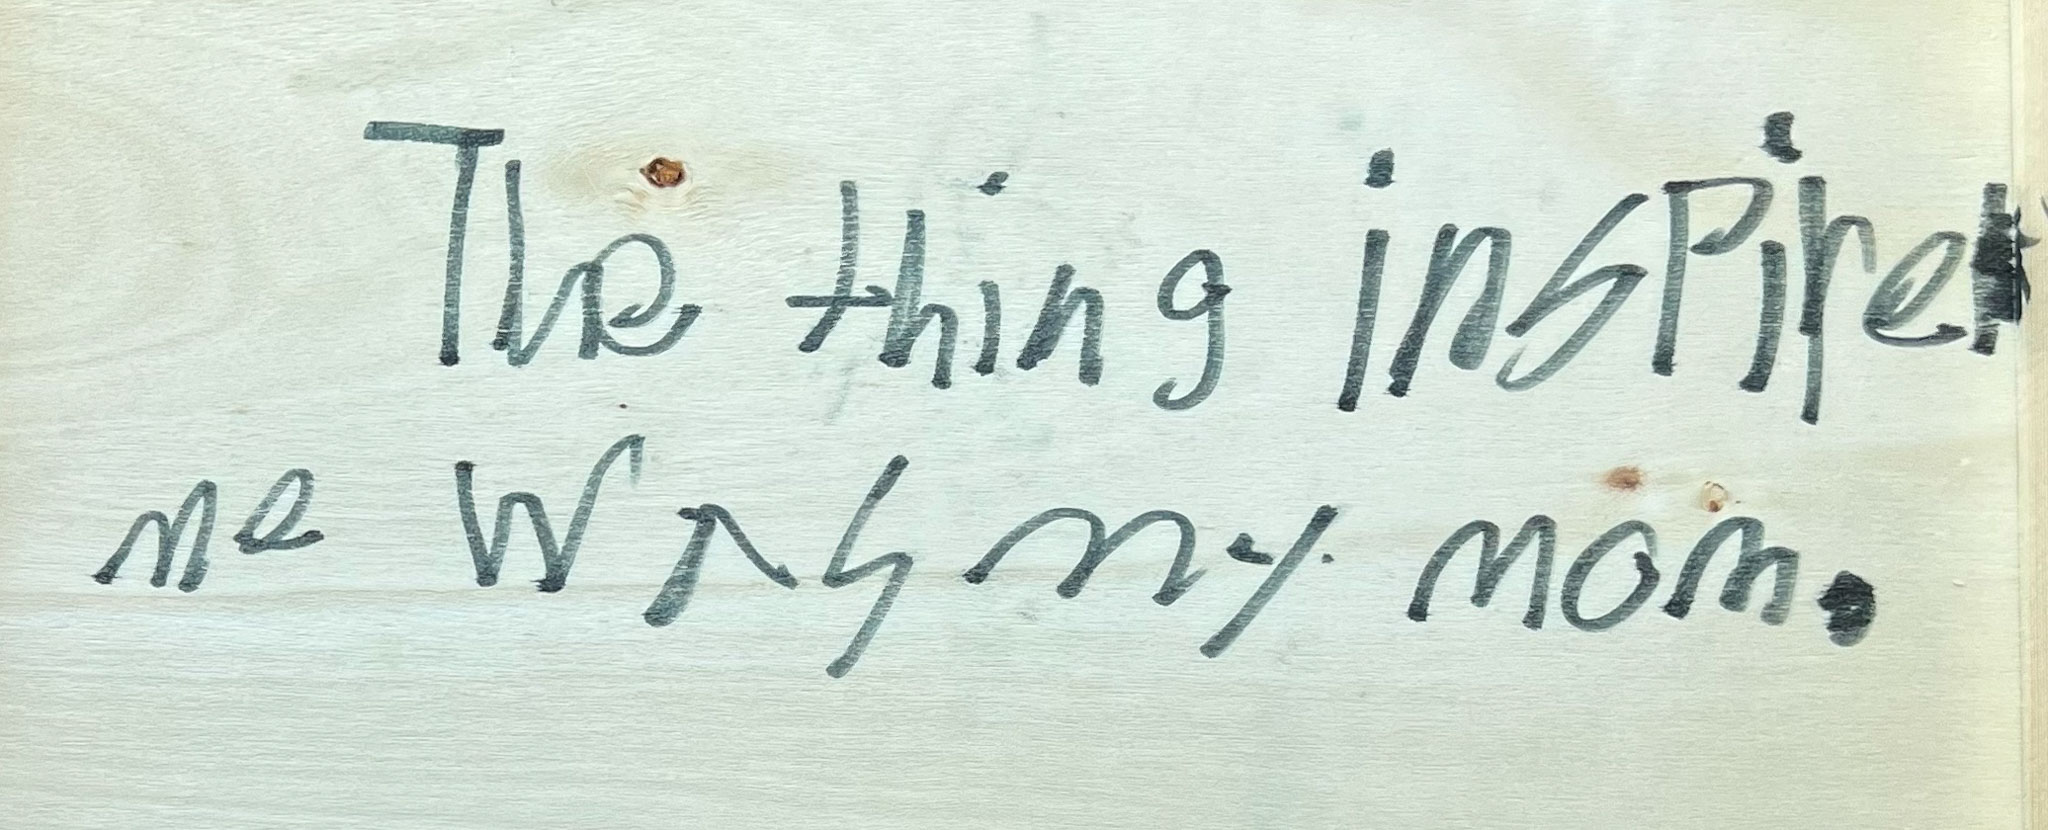 The thing inspired
me was my mom.